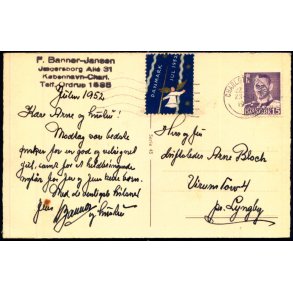 F. Banner-Jansen
Jægersborg Allé 31
København-Charl.
Telf. Ordrup 1885
Julen 1952
Kære Arne og
Modtag vor bedste
ønsker for en god og velsignet
jul, samt for et
nytår for jer og jeres kære børn.
Med de venligste hilsner
Jens Banner
og
DANMARK
JUL 1952
DANMARK
15
Serie 45
Hr. og fru
driftsleder Arne Bloch
Virumtov 4
pr. Lyngby